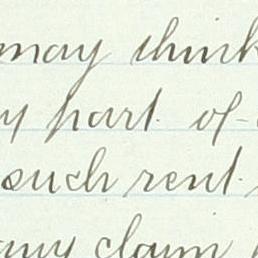 may think
y part of
such rent
any claim